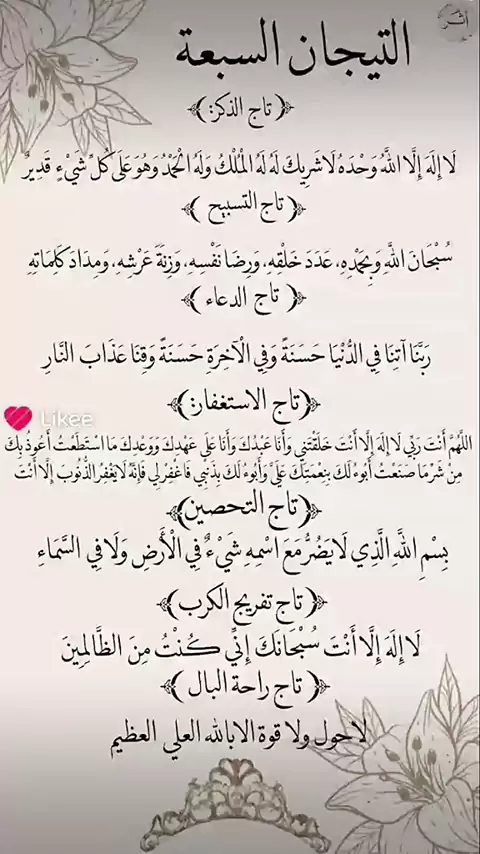 أثر
التيجان السبعة
﴿تاج الذكر:﴾
لَا إِلَهَ إِلَّا اللَّهُ وَحْدَهُ لَا شَرِيكَ لَهُ لَهُ الْمُلْكُ وَلَهُ الْحَمْدُ وَهُوَ عَلَى كُلِّ شَيْءٍ قَدِيرٌ
﴿تاج التسبيح﴾
سُبْحَانَ اللَّهِ وَبِحَمْدِهِ، عَدَدَ خَلْقِهِ، وَرِضَا نَفْسِهِ، وَزِنَةَ عَرْشِهِ، وَمِدَادَ كَلِمَاتِهِ
﴿تاج الدعاء﴾
رَبَّنَا آتِنَا فِي الدُّنْيَا حَسَنَةً وَفِي الْآخِرَةِ حَسَنَةً وَقِنَا عَذَابَ النَّارِ
﴿تاج الاستغفار:﴾
Likee
اللهُمَّ أَنْتَ رَبِّي لَا إِلَهَ إِلَّا أَنْتَ خَلَقْتَنِي وَأَنَا عَبْدُكَ وَأَنَا عَلَى عَهْدِكَ وَوَعْدِكَ مَا اسْتَطَعْتُ أَعُوذُ بِكَ
مِنْ شَرِّ مَا صَنَعْتُ أَبُوءُ لَكَ بِنِعْمَتِكَ عَلَيَّ وَأَبُوءُ لَكَ بِذَنْبِي فَاغْفِرْ لِي فَإِنَّهُ لَا يَغْفِرُ الذُّنُوبَ إِلَّا أَنْتَ
﴿تاج التحصين﴾
بِسْمِ اللَّهِ الَّذِي لَا يَضُرُّ مَعَ اسْمِهِ شَيْءٌ فِي الْأَرْضِ وَلَا فِي السَّمَاءِ
﴿تاج تفريج الكرب﴾
لَا إِلَهَ إِلَّا أَنْتَ سُبْحَانَكَ إِنِّي كُنْتُ مِنَ الظَّالِمِينَ
﴿تاج راحة البال﴾
لا حول ولا قوة الا بالله العلي العظيم